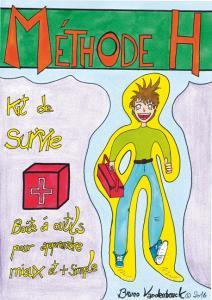 MÉTHODE H
Kit de
survie
Boîte à outils
pour apprendre
mieux et + simple
Bruno Vandenbeuck © 2016